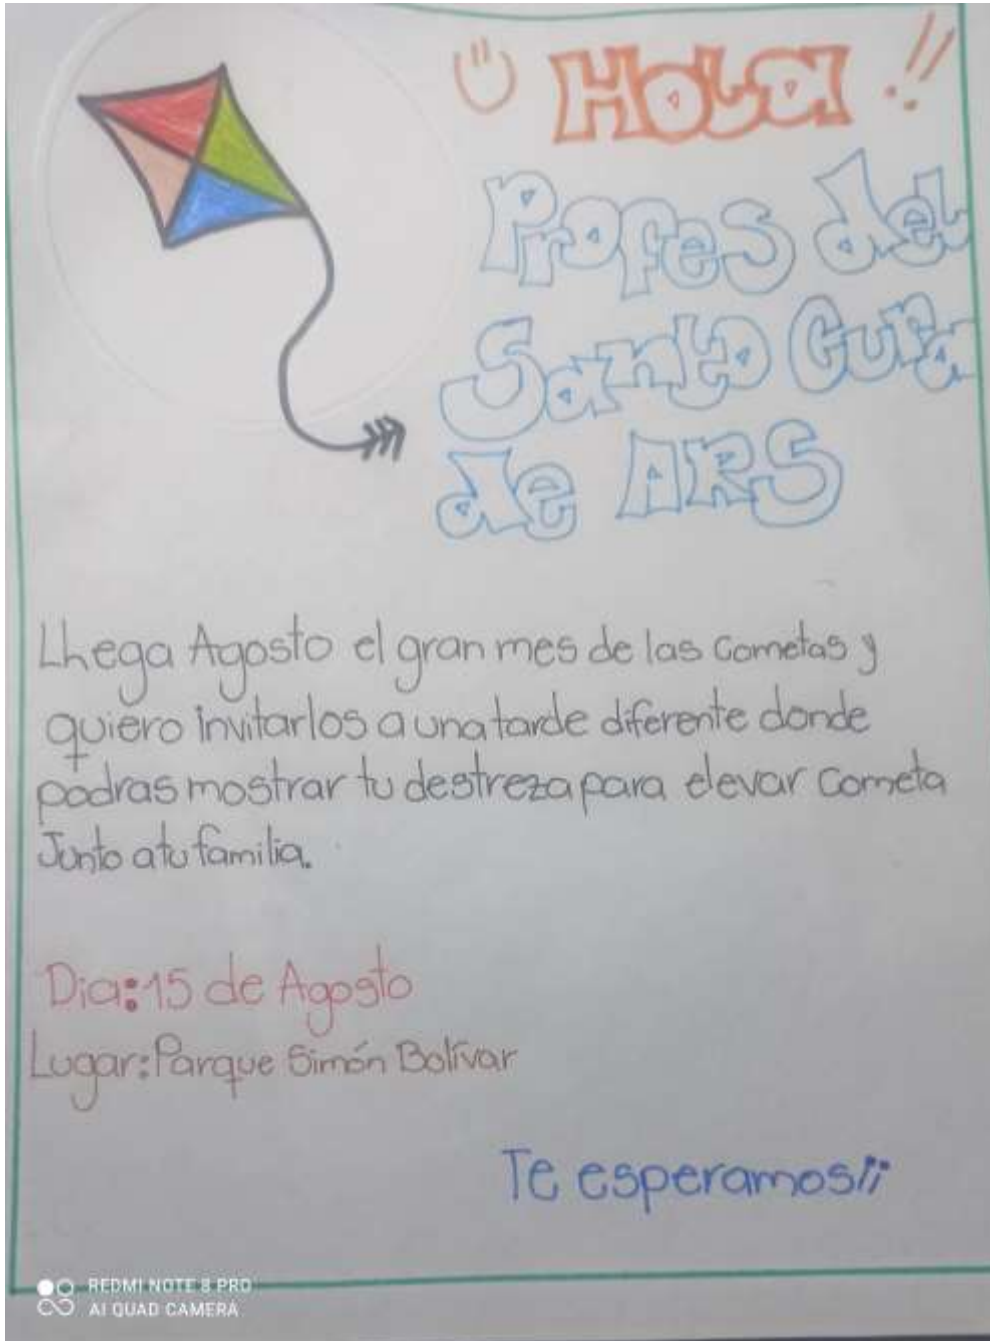 Hola !!
Profes del
Santo Cura
de ARS
Lhega Agosto el gran mes de las cometas y
quiero invitarlos a una tarde diferente donde
podras mostrar tu destreza para elevar cometa
Junto a tu familia.
Dia: 15 de Agosto
Lugar: Parque Simón Bolívar
Te esperamos ¡¡
REDMI NOTE 8 PRO
AI QUAD CAMERA